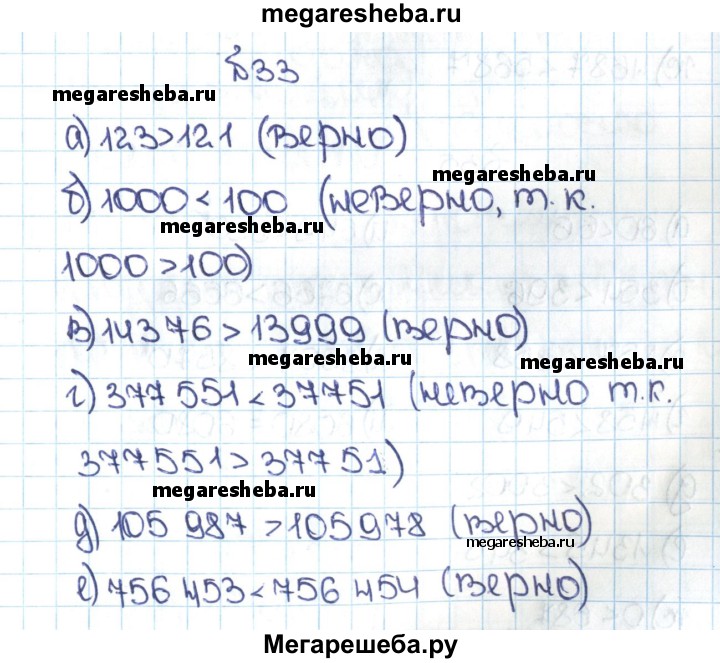 megaresheba.ru
№33
megaresheba.ru
а) 123>121 (верно)
megaresheba.ru
б) 1000<100 (неверно, т.к.
megaresheba.ru
1000>100)
в) 14376>13999 (верно)
megaresheba.ru
megaresheba.ru
г) 377 551<37751 (неверно т.к.
377551>37751)
megaresheba.ru
д) 105 987>105978 (верно)
megaresheba.ru
е) 756 453<756 454 (верно)
Мегарешеба.ру